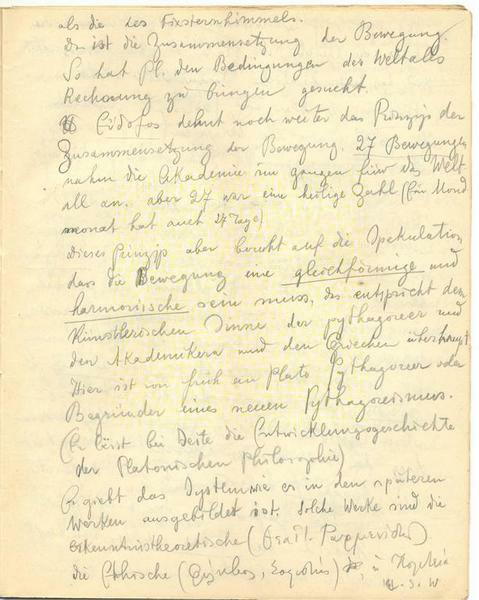 als die des Fixsternhimmels.
Da ist die Zusammensetzung der Bewegung.
So hat Pl. den Bedingungen des Weltalls
Rechnung zu bringen gesucht.
Eúdoxos dehnt noch weiter das Prinzip der
Zusammensetzung der Bewegung. 27 Bewegungen
nahm die Akademie im ganzen fürs das Welt
all an. aber 27 war eine heilige Zahl (Ein Mond
monat hat auch 27 Tage)
Dieses Prinzip aber beruht auf die Spekulation,
dass die Bewegung eine gleichförmige und
harmonische sein muss, das entspricht dem
Künstlerischen Sinne der pythagoreer und
der Akademikern und den Griechen überhaupt
Hier ist von früh an Plato Pythagoreer oder
Begründer eines neuen Pythagoreismus.
(Er lässt bei Seite die Entwicklungsgeschichte
der Platonischen Philosophie)
Er giebt das System wie es in den späteren
Werken ausgebildet ist. Solche Werke sind die
erkenntnistheoretische (Θεαίτ. Παρμενίδης)
die Ethische (Φίληβος, Σοφιστής) u Πολιτεία
u. s. w